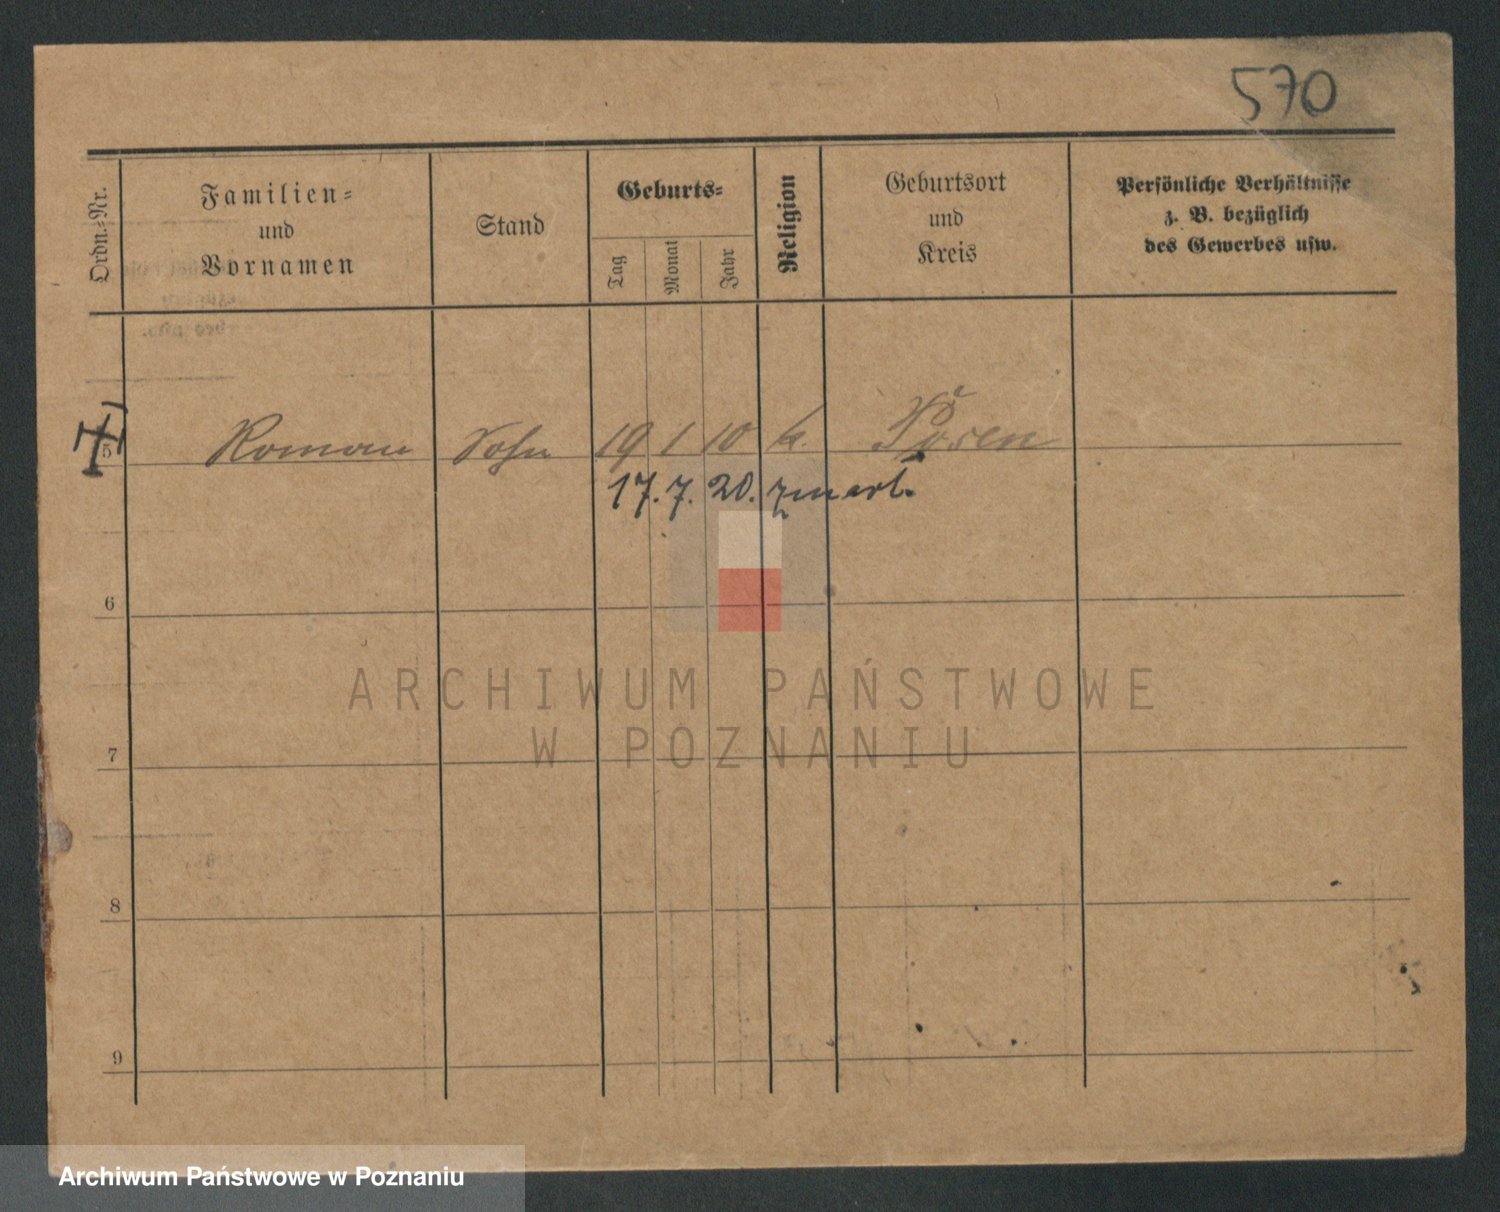 570
Ordn.-Nr.
Familien-
und
Vornamen
Stand
Geburts-
Tag
Monat
Jahr
Religion
Geburtsort
und
Kreis
Persönliche Verhältnisse
z. B. bezüglich
des Gewerbes usw.
5 Roman Sohn 19 1 10 k. Posen
17. 7. 20. zmarł.
6
7
8
9
ARCHIWUM PAŃSTWOWE
W POZNANIU
Archiwum Państwowe w Poznaniu